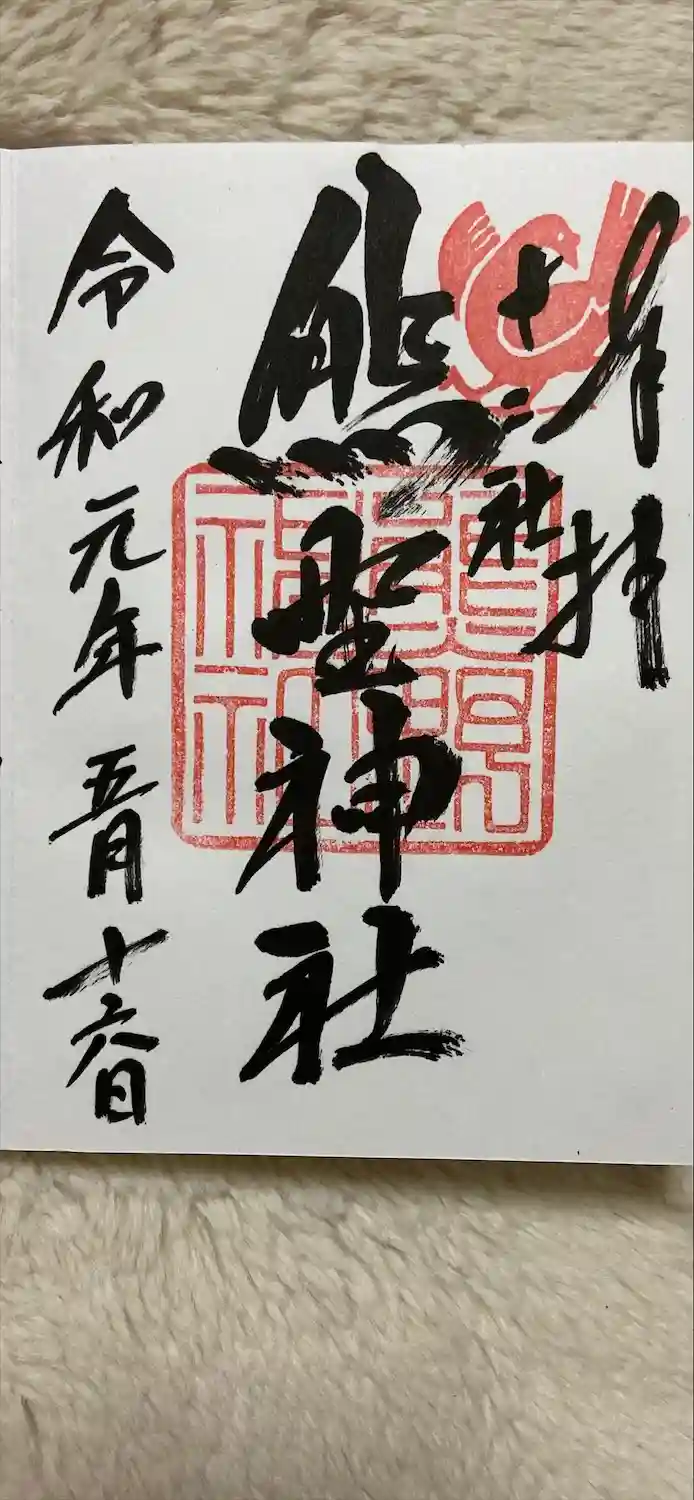 奉拝
十二社
熊野神社
令和元年五月十六日